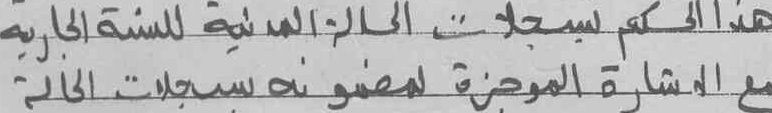 هذا الحكم بسجلات الحالة المدنية للسنة الجارية
مع الاشارة الموجزة لمضمونه بسجلات الحالة